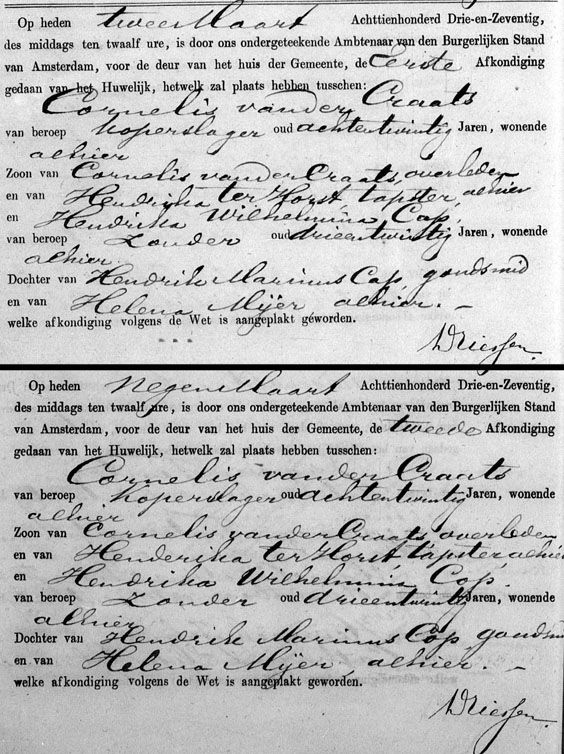 Op heden twee Maart Achttienhonderd Drie-en-Zeventig,
des middags ten twaalf ure, is door ons ondergeteekende Ambtenaar van den Burgerlijken Stand
van Amsterdam, voor de deur van het huis der Gemeente, de Eerste Afkondiging
gedaan van het Huwelijk, hetwelk zal plaats hebben tusschen:
Cornelis vander Craats
van beroep koperslager oud achtentwintig Jaren, wonende
alhier
Zoon van Cornelis vander Craats, overleden
en van Hendrika ter Horst, tapster, alhier
en Hendrika Wilhelmina Cop,
van beroep Zonder oud drieentwintig Jaren, wonende
alhier.
Dochter van Hendrik Marinus Cop, goudsmid
en van Helena Mijer alhier. –
welke afkondiging volgens de Wet is aangeplakt geworden.
Driessen.
Op heden Negen Maart Achttienhonderd Drie-en-Zeventig,
des middags ten twaalf ure, is door ons ondergeteekende Ambtenaar van den Burgerlijken Stand
van Amsterdam, voor de deur van het huis der Gemeente, de tweede Afkondiging
gedaan van het Huwelijk, hetwelk zal plaats hebben tusschen:
Cornelis vander Craats
van beroep koperslager oud achtentwintig Jaren, wonende
alhier
Zoon van Cornelis vander Craats, overleden
en van Henderika ter Horst, tapster, alhier
en Hendrika Wilhelmina Cop.
van beroep Zonder oud drieentwintig Jaren, wonende
alhier
Dochter van Hendrik Marinus Cop, goudsmid
en van Helena Mijer, alhier. –
welke afkondiging volgens de Wet is aangeplakt geworden.
Driessen.